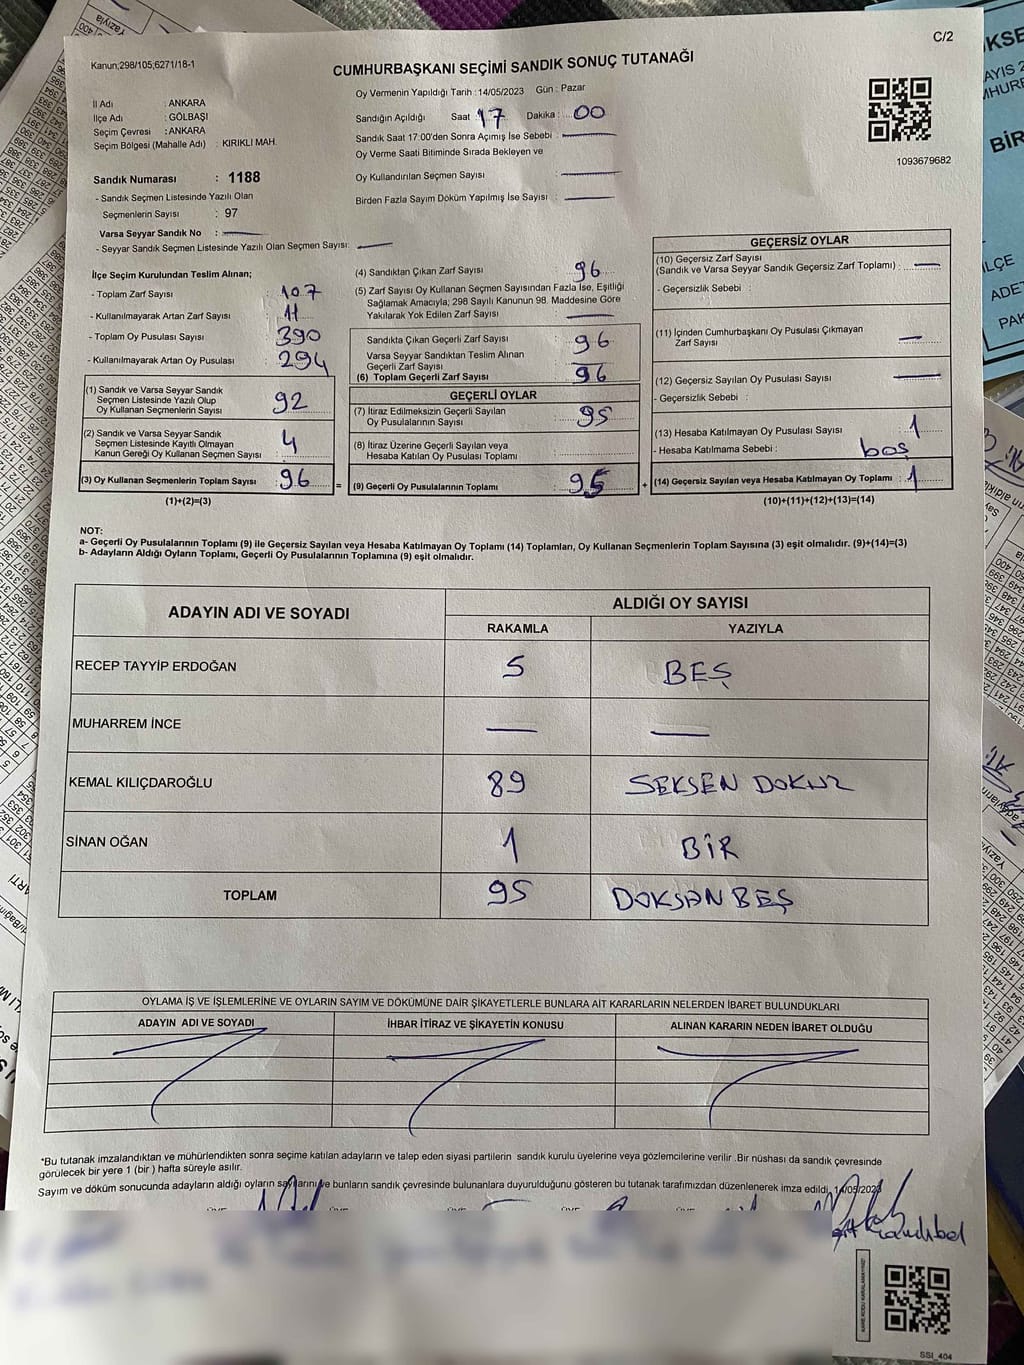 C/2
Kanun;298/105;6271/18-1
CUMHURBAŞKANI SEÇİMİ SANDIK SONUÇ TUTANAĞI
Oy Vermenin Yapıldığı Tarih : 14/05/2023 Gün : Pazar
İl Adı : ANKARA
İlçe Adı : GÖLBAŞI
Seçim Çevresi : ANKARA
Seçim Bölgesi (Mahalle Adı) : KIRIKLI MAH.
Sandık Numarası : 1188
- Sandık Seçmen Listesinde Yazılı Olan
Seçmenlerin Sayısı : 97
Varsa Seyyar Sandık No :
- Seyyar Sandık Seçmen Listesinde Yazılı Olan Seçmen Sayısı:
Sandığın Açıldığı Saat 17 Dakika : 00
Sandık Saat 17:00'den Sonra Açımış İse Sebebi :
Oy Verme Saati Bitiminde Sırada Bekleyen ve
Oy Kullandırılan Seçmen Sayısı :
Birden Fazla Sayım Döküm Yapılmış İse Sayısı :
1093679682
İlçe Seçim Kurulundan Teslim Alınan;
- Toplam Zarf Sayısı : 107
- Kullanılmayarak Artan Zarf Sayısı : 11
- Toplam Oy Pusulası Sayısı : 390
- Kullanılmayarak Artan Oy Pusulası : 294
(1) Sandık ve Varsa Seyyar Sandık
Seçmen Listesinde Yazılı Olup
Oy Kullanan Seçmenlerin Sayısı : 92
(2) Sandık ve Varsa Seyyar Sandık
Seçmen Listesinde Kayıtlı Olmayan
Kanun Gereği Oy Kullanan Seçmen Sayısı : 4
(3) Oy Kullanan Seçmenlerin Toplam Sayısı : 96
(1)+(2)=(3)
(4) Sandıktan Çıkan Zarf Sayısı : 96
(5) Zarf Sayısı Oy Kullanan Seçmen Sayısından Fazla İse, Eşitliği
Sağlamak Amacıyla; 298 Sayılı Kanunun 98. Maddesine Göre
Yakılarak Yok Edilen Zarf Sayısı :
Sandıkta Çıkan Geçerli Zarf Sayısı : 96
Varsa Seyyar Sandıktan Teslim Alınan
Geçerli Zarf Sayısı :
(6) Toplam Geçerli Zarf Sayısı : 96
GEÇERLİ OYLAR
(7) İtiraz Edilmeksizin Geçerli Sayılan
Oy Pusulalarının Sayısı : 95
(8) İtiraz Üzerine Geçerli Sayılan veya
Hesaba Katılan Oy Pusulası Toplamı :
= (9) Geçerli Oy Pusulalarının Toplamı : 95
GEÇERSİZ OYLAR
(10) Geçersiz Zarf Sayısı
(Sandık ve Varsa Seyyar Sandık Geçersiz Zarf Toplamı) :
- Geçersizlik Sebebi :
(11) İçinden Cumhurbaşkanı Oy Pusulası Çıkmayan
Zarf Sayısı :
(12) Geçersiz Sayılan Oy Pusulası Sayısı :
- Geçersizlik Sebebi :
(13) Hesaba Katılmayan Oy Pusulası Sayısı : 1
- Hesaba Katılmama Sebebi : boş
+ (14) Geçersiz Sayılan veya Hesaba Katılmayan Oy Toplamı : 1
(10)+(11)+(12)+(13)=(14)
NOT:
a- Geçerli Oy Pusulalarının Toplamı (9) ile Geçersiz Sayılan veya Hesaba Katılmayan Oy Toplamı (14) Toplamları, Oy Kullanan Seçmenlerin Toplam Sayısına (3) eşit olmalıdır. (9)+(14)=(3)
b- Adayların Aldığı Oyların Toplamı, Geçerli Oy Pusulalarının Toplamına (9) eşit olmalıdır.
ADAYIN ADI VE SOYADI
ALDIĞI OY SAYISI
RAKAMLA YAZIYLA
RECEP TAYYİP ERDOĞAN 5 BEŞ
MUHARREM İNCE
KEMAL KILIÇDAROĞLU 89 SEKSEN DOKUZ
SİNAN OĞAN 1 BİR
TOPLAM 95 DOKSAN BEŞ
OYLAMA İŞ VE İŞLEMLERİNE VE OYLARIN SAYIM VE DÖKÜMÜNE DAİR ŞİKAYETLERLE BUNLARA AİT KARARLARIN NELERDEN İBARET BULUNDUKLARI
ADAYIN ADI VE SOYADI İHBAR İTİRAZ VE ŞİKAYETİN KONUSU ALINAN KARARIN NEDEN İBARET OLDUĞU
*Bu tutanak imzalandıktan ve mühürlendikten sonra seçime katılan adayların ve talep eden siyasi partilerin sandık kurulu üyelerine veya gözlemcilerine verilir .Bir nüshası da sandık çevresinde
görülecek bir yere 1 (bir ) hafta süreyle asılır.
Sayım ve döküm sonucunda adayların aldığı oyların sayılarını ve bunların sandık çevresinde bulunanlara duyurulduğunu gösteren bu tutanak tarafımızdan düzenlenerek imza edildi. 14/05/2023
SSI_404